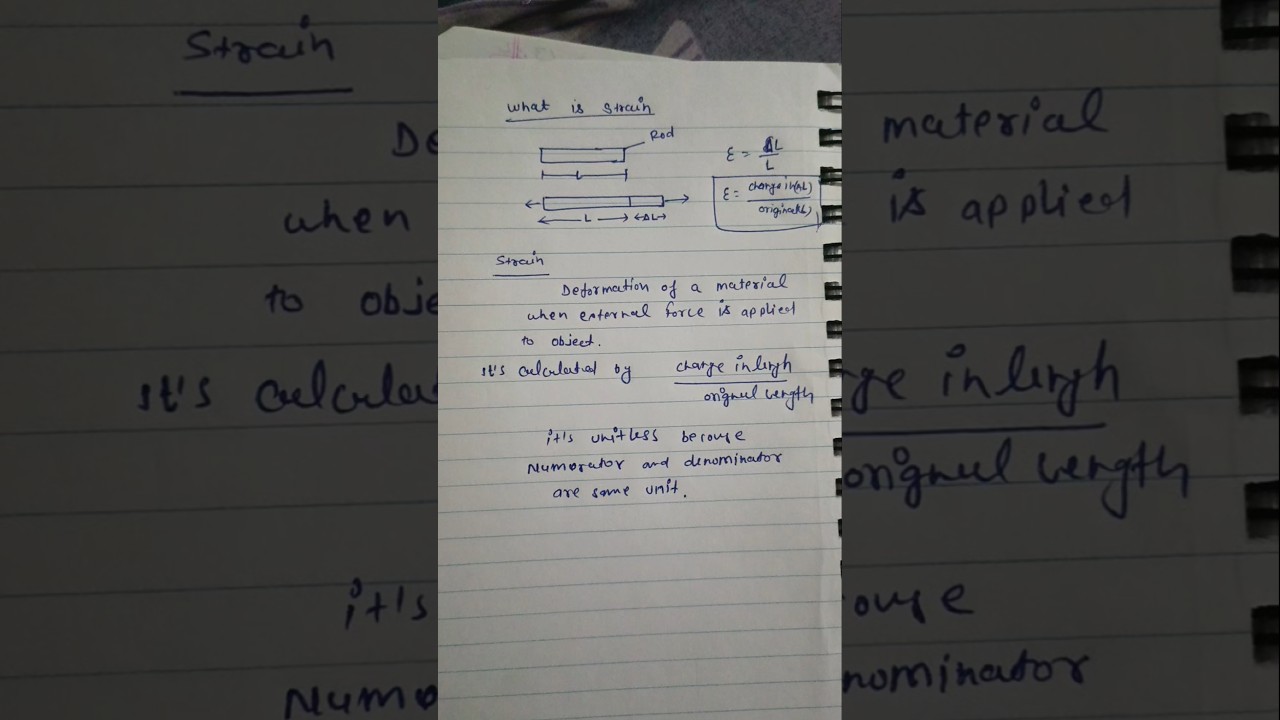 what is strain
Rod
L
L ΔL
ε = ΔL
L
ε = change in(ΔL)
original(L)
Strain
Deformation of a material
when external force is applied
to object.
It's calculated by change in lengh
orignal length
it's unitless becouse
Numorator and denominator
are same unit.